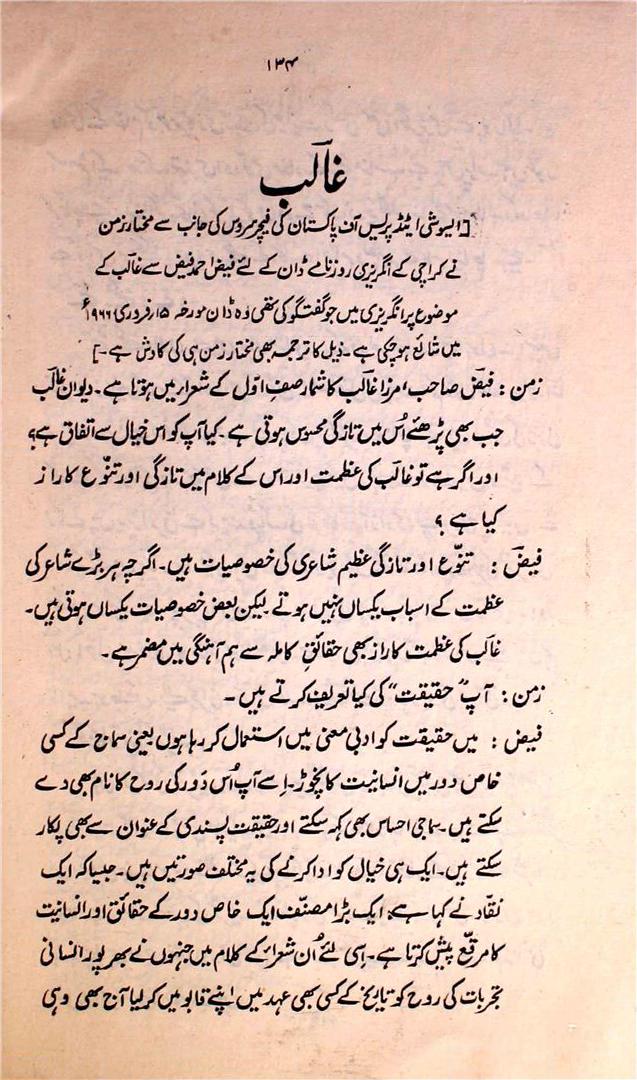 ۱۳۴
غالب
[ایسوشی ایٹڈ پریس آف پاکستان کی فیچر سروس کی جانب سے مختار زمن
نے کراچی کے انگریزی روزنامے ڈان کے لئے فیض احمد فیض سے غالب کے
موضوع پر انگریزی میں جو گفتگو کی تھی وہ ڈان مورخہ ۱۵ر فروری ۱۹۶۶ء
میں شائع ہو چکی ہے۔ ذیل کا ترجمہ بھی مختار زمن ہی کی کاوش ہے۔]
زمن : فیض صاحب، مرزا غالب کا شمار صفِ اوّل کے شعرار میں ہوتا ہے۔ دیوان غالب
جب بھی پڑھئے اُس میں تازگی محسوس ہوتی ہے۔ کیا آپ کو اس خیال سے اتفاق ہے؟
اور اگر ہے تو غالب کی عظمت اور اس کے کلام میں تازگی اور تنوّع کا راز
کیا ہے ؟
فیض : تنوّع اور تازگی عظیم شاعری کی خصوصیات ہیں۔ اگرچہ ہر بڑے شاعر کی
عظمت کے اسباب یکساں نہیں ہوتے لیکن بعض خصوصیات یکساں ہوتی ہیں۔
غالب کی عظمت کا راز بھی حقائقِ کاملہ سے ہم آہنگی میں مضمر ہے۔
زمن : آپ "حقیقت" کی کیا تعریف کرتے ہیں۔
فیض : میں حقیقت کو ادبی معنی میں استعمال کر رہا ہوں یعنی سماج کے کسی
خاص دور میں انسانیت کا نچوڑ۔ اِسے آپ اُس دَور کی روح کا نام بھی دے
سکتے ہیں۔ سماجی احساس بھی کہہ سکتے اور حقیقت پسندی کے عنوان سے بھی پکار
سکتے ہیں۔ ایک ہی خیال کو ادا کرنے کی یہ مختلف صورتیں ہیں۔ جیسا کہ ایک
نقّاد نے کہا ہے، ایک بڑا مصنّف ایک خاص دور کے حقائق اور انسانیت
کا مرقّع پیش کرتا ہے۔ اِسی لئے اُن شعرار کے کلام میں جنہوں نے بھرپور انسانی
تجربات کی روح کو تاریخ کے کسی بھی عہد میں اپنے قابو میں کر لیا آج بھی وہی